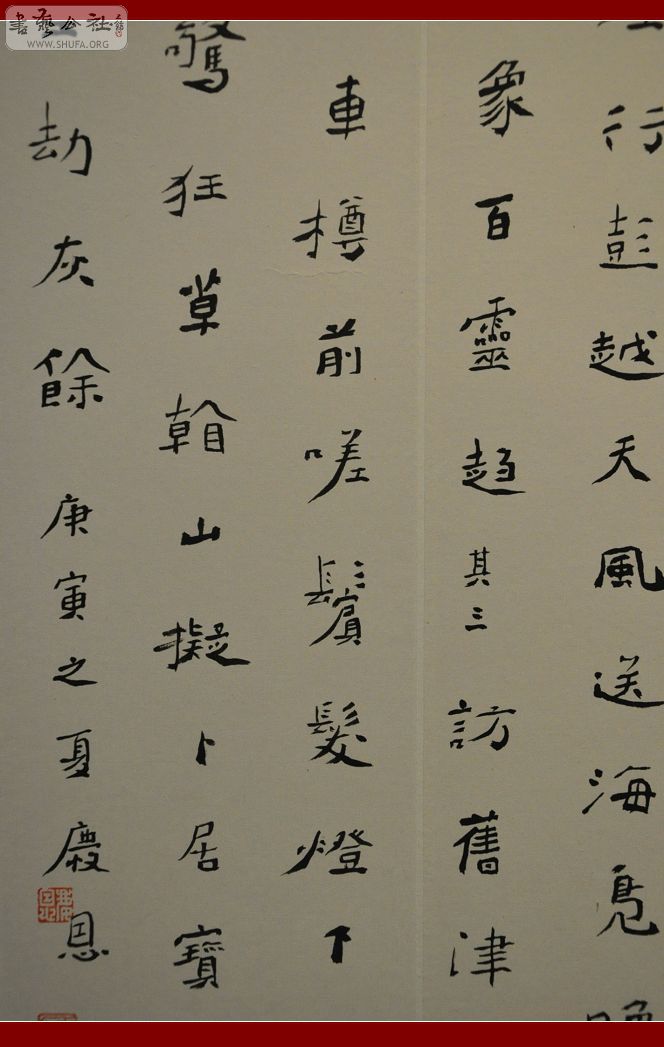 書藝公社
WWW.SHUFA.ORG
行彭越天風送海凫
象百靈趋其三訪舊津
車樽前嗟鬢髮燈下
驚狂草山擬卜居寶
劫灰餘庚寅之夏慶恩